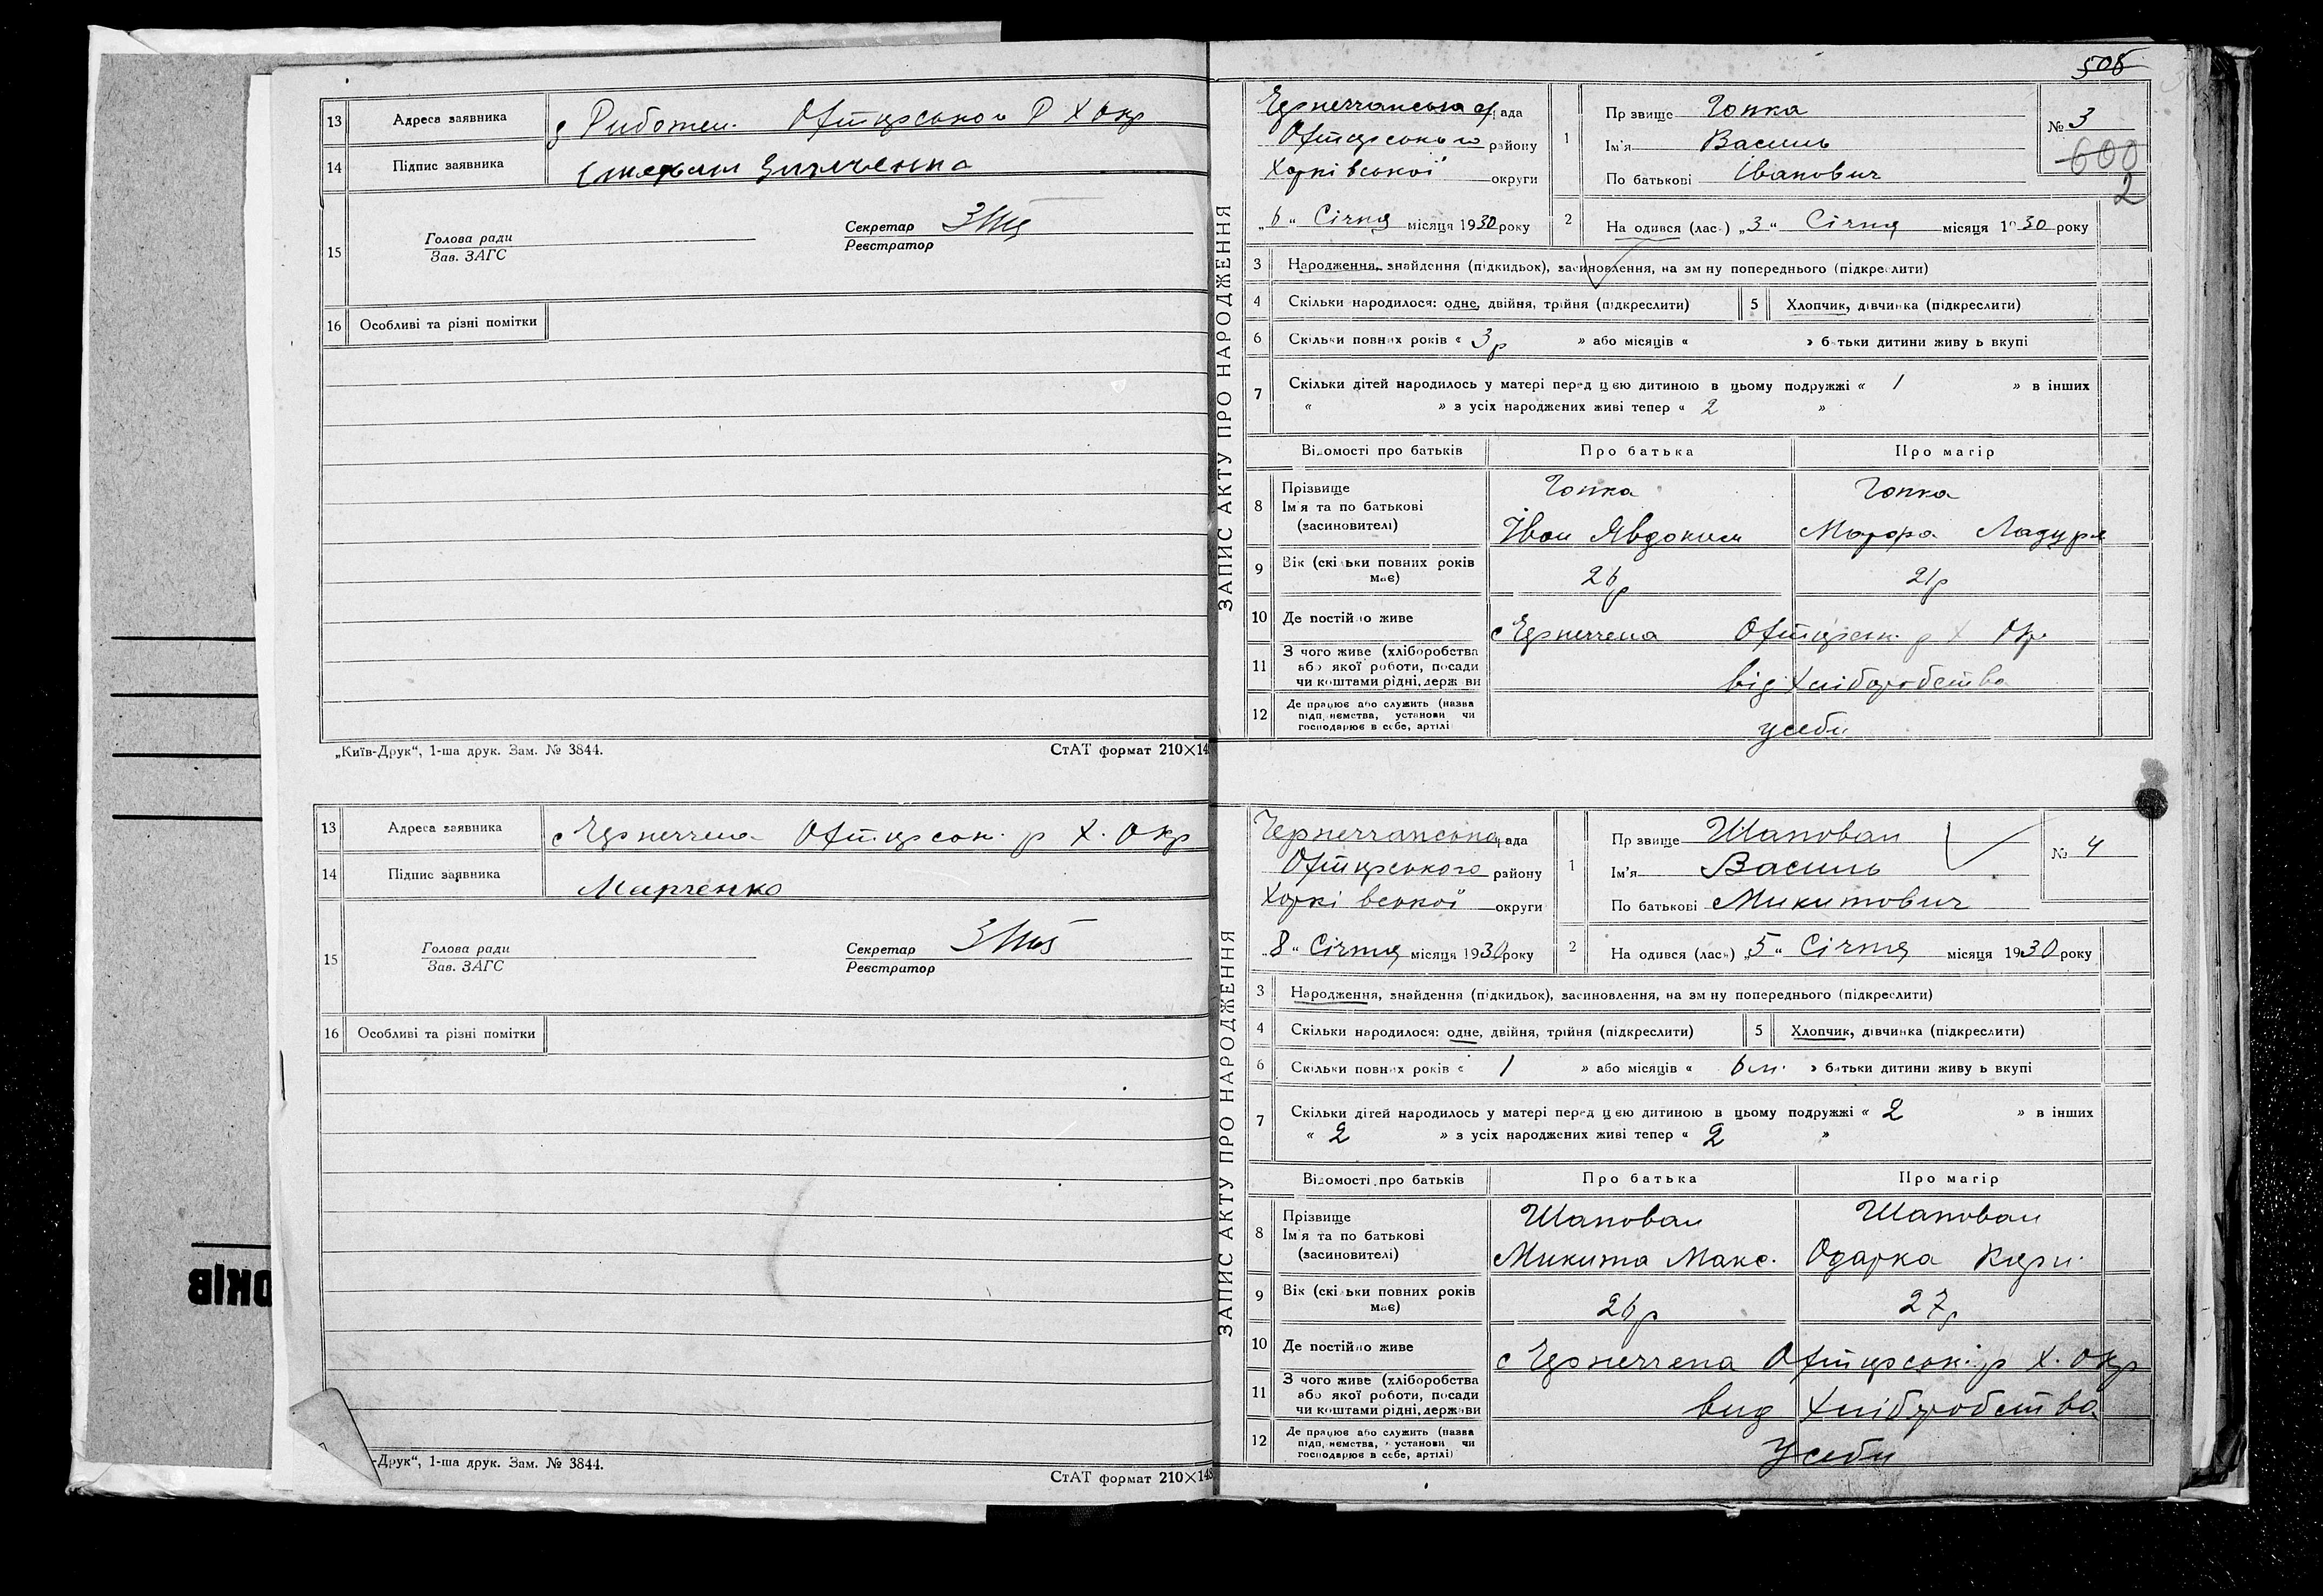 13 Адреса заявника Охтирського Р Х Окр
14 Підпис заявника
15 Голова ради
Зав. ЗАГС
Секретар
Реєстратор
16 Особливі та різні помітки
„Київ-Друк“, 1-ша друк. Зам. № 3844.
СтАТ формат 210×14
13 Адреса заявника с Охтирськ. р Х. Окр
14 Підпис заявника Марченко
15 Голова ради
Зав. ЗАГС
Секретар
Реєстратор
16 Особливі та різні помітки
-Друк“, 1-ша друк. Зам. № 3844.
СтАТ формат 210×148
508
ЗАПИС АКТУ ПРО НАРОДЖЕННЯ
Чернеччанська рада
Охтирського району
Харківської округи
„6“ Січня місяця 1930 року
1 Прізвище Гопка
Ім'я Василь
По батькові Іванович
№ 3
600
2
2 На одився (лась) „3“ Січня місяця 1930 року
3 Народження, знайдення (підкидьок), засиновлення, на зм ну попереднього (підкреслити)
4 Скільки народилося: одне, двійня, трійня (підкреслити)
5 Хлопчик, дівчинка (підкреслити)
6 Скільки повних років « 3р » або місяців « » батьки дитини живу ь вкупі
7 Скільки дітей народилось у матері перед цією дитиною в цьому подружжі « 1 » в інших
« » з усіх народжених живі тепер « 2 »
Відомості про батьків Про батька Про матір
8 Прізвище
Ім'я та по батькові
(засиновителі)
Гопка
Іван Явдоким
Гопка
Марфа
9 Вік (скільки повних років має) 26р 21р
10 Де постійно живе с Чернеччена Охтирськ. р Х Окр
11 З чого живе (хліборобства
або якої роботи, посади
чи коштами рідні, держави
від Хліборобства
12 Де працює або служить (назва
підприємства, установи чи
господарює в себе, артілі)
усебе
ЗАПИС АКТУ ПРО НАРОДЖЕННЯ
Чернеччанська рада
Охтирського району
Харківської округи
„8“ Січня місяця 1930 року
1 Прізвище Шаповал
Ім'я Василь
По батькові Микитович
№ 4
2 На одився (лась) „5“ Січня місяця 1930 року
3 Народження, знайдення (підкидьок), засиновлення, на зм ну попереднього (підкреслити)
4 Скільки народилося: одне, двійня, трійня (підкреслити)
5 Хлопчик, дівчинка (підкреслити)
6 Скільки повних років « 1 » або місяців « 6 м. » батьки дитини живу ь вкупі
7 Скільки дітей народилось у матері перед цією дитиною в цьому подружжі « 2 » в інших
« 2 » з усіх народжених живі тепер « 2 »
Відомості про батьків Про батька Про матір
8 Прізвище
Ім'я та по батькові
(засиновителі)
Шаповал
Микита Макс.
Шаповал
Одарка
9 Вік (скільки повних років має) 26р 27р
10 Де постійно живе с Чернеччена Охтирськ. р Х. Окр
11 З чого живе (хліборобства
або якої роботи, посади
чи коштами рідні, держави
вид Хліборобства
12 Де працює або служить (назва
підприємства, установи чи
господарює в себе, артілі)
Усебе